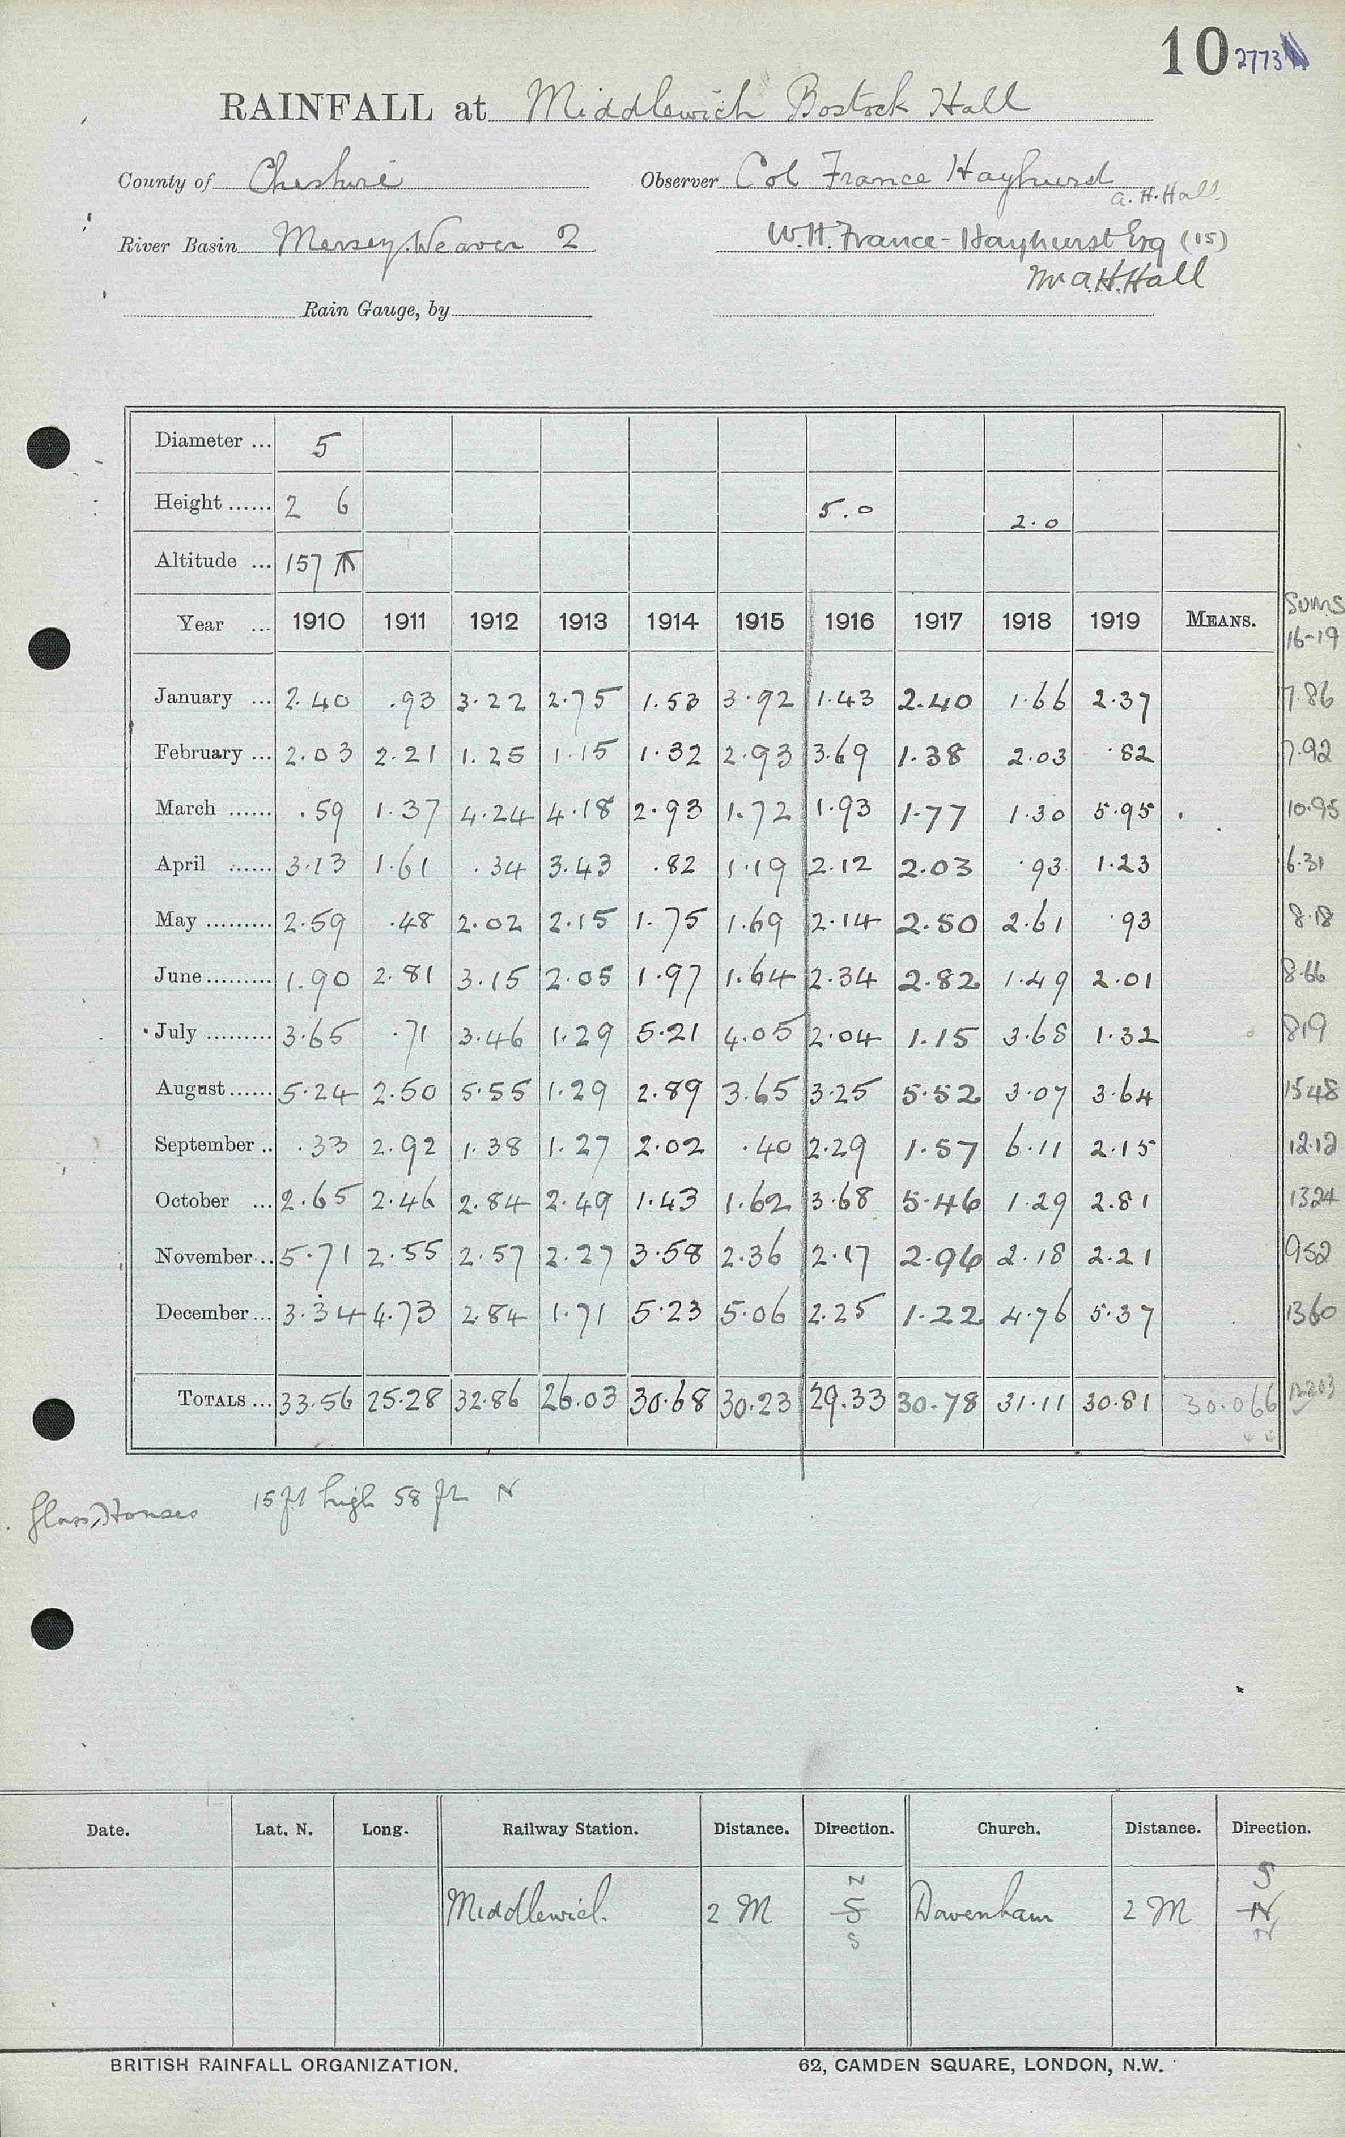 10 2773
RAINFALL at Middlewich Bostock Hall
County of Cheshire Observer Col France Hayhurst
a.H.Hall
River Basin Mersey. Weaver 2 W.H. France-Hayhurst Esq (15)
Mr A.H. Hall
Rain Gauge, by
Diameter ... 5
Height ...... 2 6 5.0 2.0
Altitude ... 157
Sums
Year ... 1910 1911 1912 1913 1914 1915 1916 1917 1918 1919 MEANS.
16-19
January ... 2.40 .93 3.22 2.75 1.53 3.92 1.43 2.40 1.66 2.37 7.86
February ... 2.03 2.21 1.25 1.15 1.32 2.93 3.69 1.38 2.03 .82 7.92
March ...... .59 1.37 4.24 4.18 2.93 1.72 1.93 1.77 1.30 5.95 10.95
April ...... 3.13 1.61 .34 3.43 .82 1.19 2.12 2.03 .93 1.23 6.31
May ......... 2.59 .48 2.02 2.15 1.75 1.69 2.14 2.50 2.61 .93 8.18
June ......... 1.90 2.81 3.15 2.05 1.97 1.64 2.34 2.82 1.49 2.01 8.66
July ......... 3.65 .71 3.46 1.29 5.21 4.05 2.04 1.15 3.68 1.32 819
August ...... 5.24 2.50 5.55 1.29 2.89 3.65 3.25 5.52 3.07 3.64 1548
September .. .33 2.92 1.38 1.27 2.02 .40 2.29 1.57 6.11 2.15 12.12
October ... 2.65 2.46 2.84 2.49 1.43 1.62 3.68 5.46 1.29 2.81 1324
November .. 5.71 2.55 2.57 2.27 3.58 2.36 2.17 2.96 2.18 2.21 952
December ... 3.34 4.73 2.84 1.71 5.23 5.06 2.25 1.22 4.76 5.37 1360
TOTALS ... 33.56 25.28 32.86 26.03 30.68 30.23 29.33 30.78 31.11 30.81 30.066 12203
Glass Houses 15 ft high 58 ft N
Date. Lat. N. Long. Railway Station. Distance. Direction. Church. Distance. Direction.
N S
Middlewich. 2 M S Davenham 2 M N
S N
BRITISH RAINFALL ORGANIZATION. 62, CAMDEN SQUARE, LONDON, N.W.